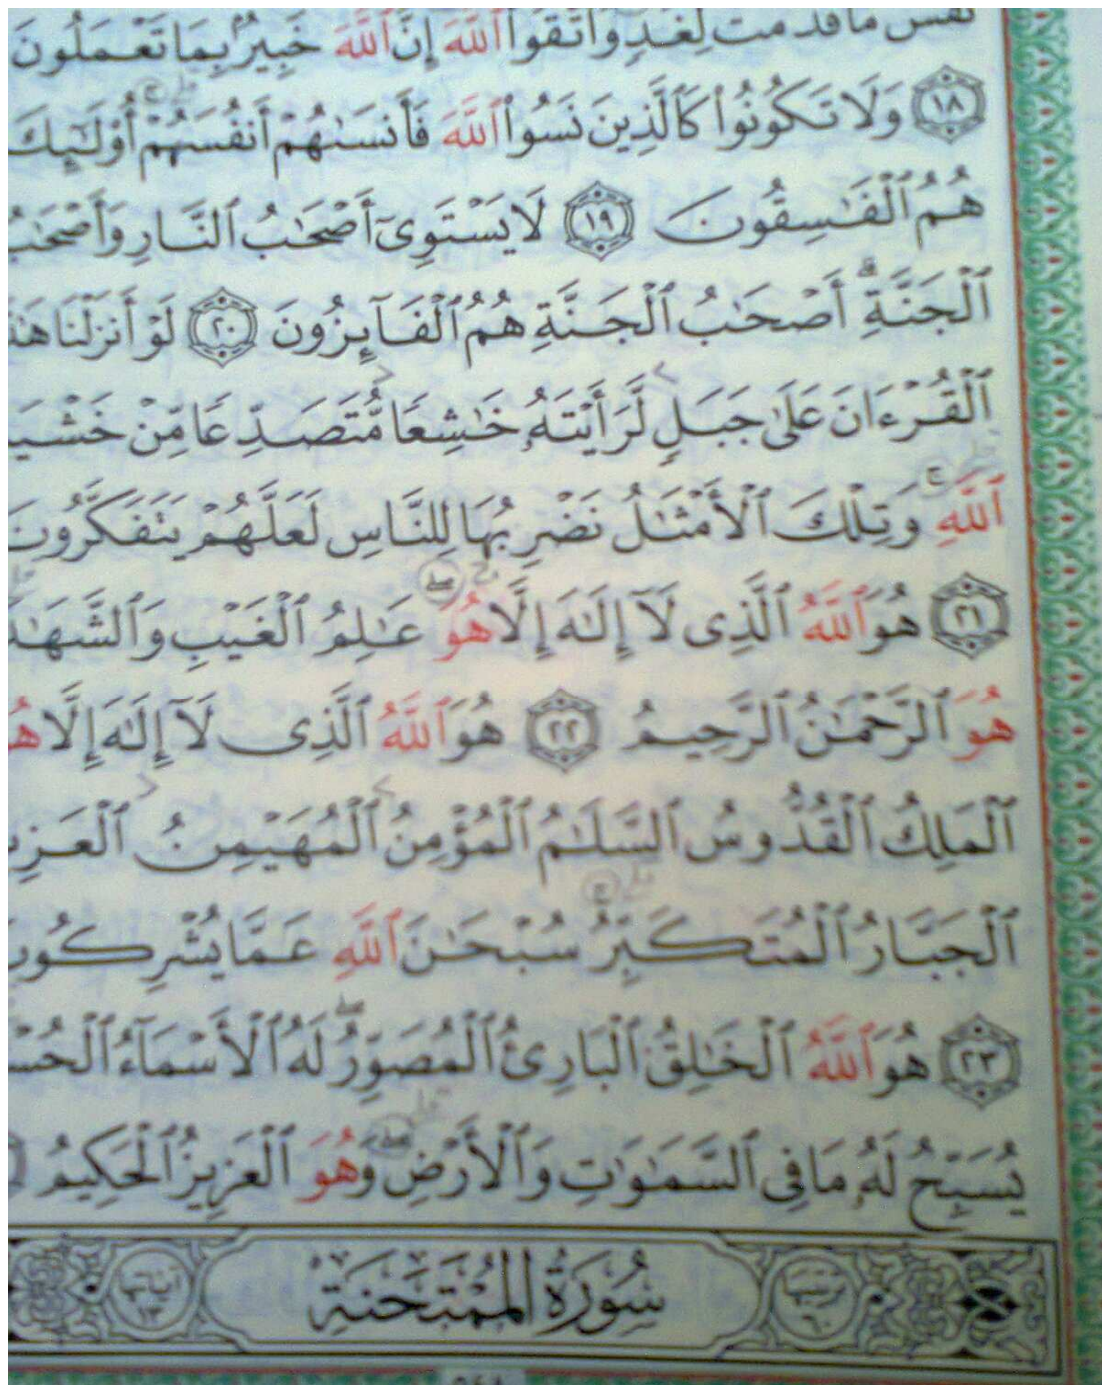 نفس ما قدمت لغد واتقوا ٱللَّهَ إِنَّ ٱللَّهَ خَبِيرٌۢ بِمَا تَعْمَلُونَ
﴿١٨﴾ وَلَا تَكُونُوا۟ كَٱلَّذِينَ نَسُوا۟ ٱللَّهَ فَأَنسَىٰهُمْ أَنفُسَهُمْ أُو۟لَـٰٓئِكَ
هُمُ ٱلْفَـٰسِقُونَ ﴿١٩﴾ لَا يَسْتَوِىٓ أَصْحَـٰبُ ٱلنَّارِ وَأَصْحَـٰبُ
ٱلْجَنَّةِ ۚ أَصْحَـٰبُ ٱلْجَنَّةِ هُمُ ٱلْفَآئِزُونَ ﴿٢٠﴾ لَوْ أَنزَلْنَا
ٱلْقُرْءَانَ عَلَىٰ جَبَلٍ لَّرَأَيْتَهُۥ خَـٰشِعًا مُّتَصَدِّعًا مِّنْ
ٱللَّهِ ۚ وَتِلْكَ ٱلْأَمْثَـٰلُ نَضْرِبُهَا لِلنَّاسِ لَعَلَّهُمْ يَتَفَكَّرُونَ
﴿٢١﴾ هُوَ ٱللَّهُ ٱلَّذِى لَآ إِلَـٰهَ إِلَّا هُوَ ۖ عَـٰلِمُ ٱلْغَيْبِ
هُوَ ٱلرَّحْمَـٰنُ ٱلرَّحِيمُ ﴿٢٢﴾ هُوَ ٱللَّهُ ٱلَّذِى لَآ إِلَـٰهَ إِلَّا
ٱلْمَلِكُ ٱلْقُدُّوسُ ٱلسَّلَـٰمُ ٱلْمُؤْمِنُ ٱلْمُهَيْمِنُ
ٱلْجَبَّارُ ٱلْمُتَكَبِّرُ ۚ سُبْحَـٰنَ ٱللَّهِ عَمَّا يُشْرِكُونَ
﴿٢٣﴾ هُوَ ٱللَّهُ ٱلْخَـٰلِقُ ٱلْبَارِئُ ٱلْمُصَوِّرُ ۖ لَهُ ٱلْأَسْمَآءُ
يُسَبِّحُ لَهُۥ مَا فِى ٱلسَّمَـٰوَٰتِ وَٱلْأَرْضِ ۖ وَهُوَ ٱلْعَزِيزُ ٱلْحَكِيمُ
سُورَةُ المُمْتَحَنَةِ